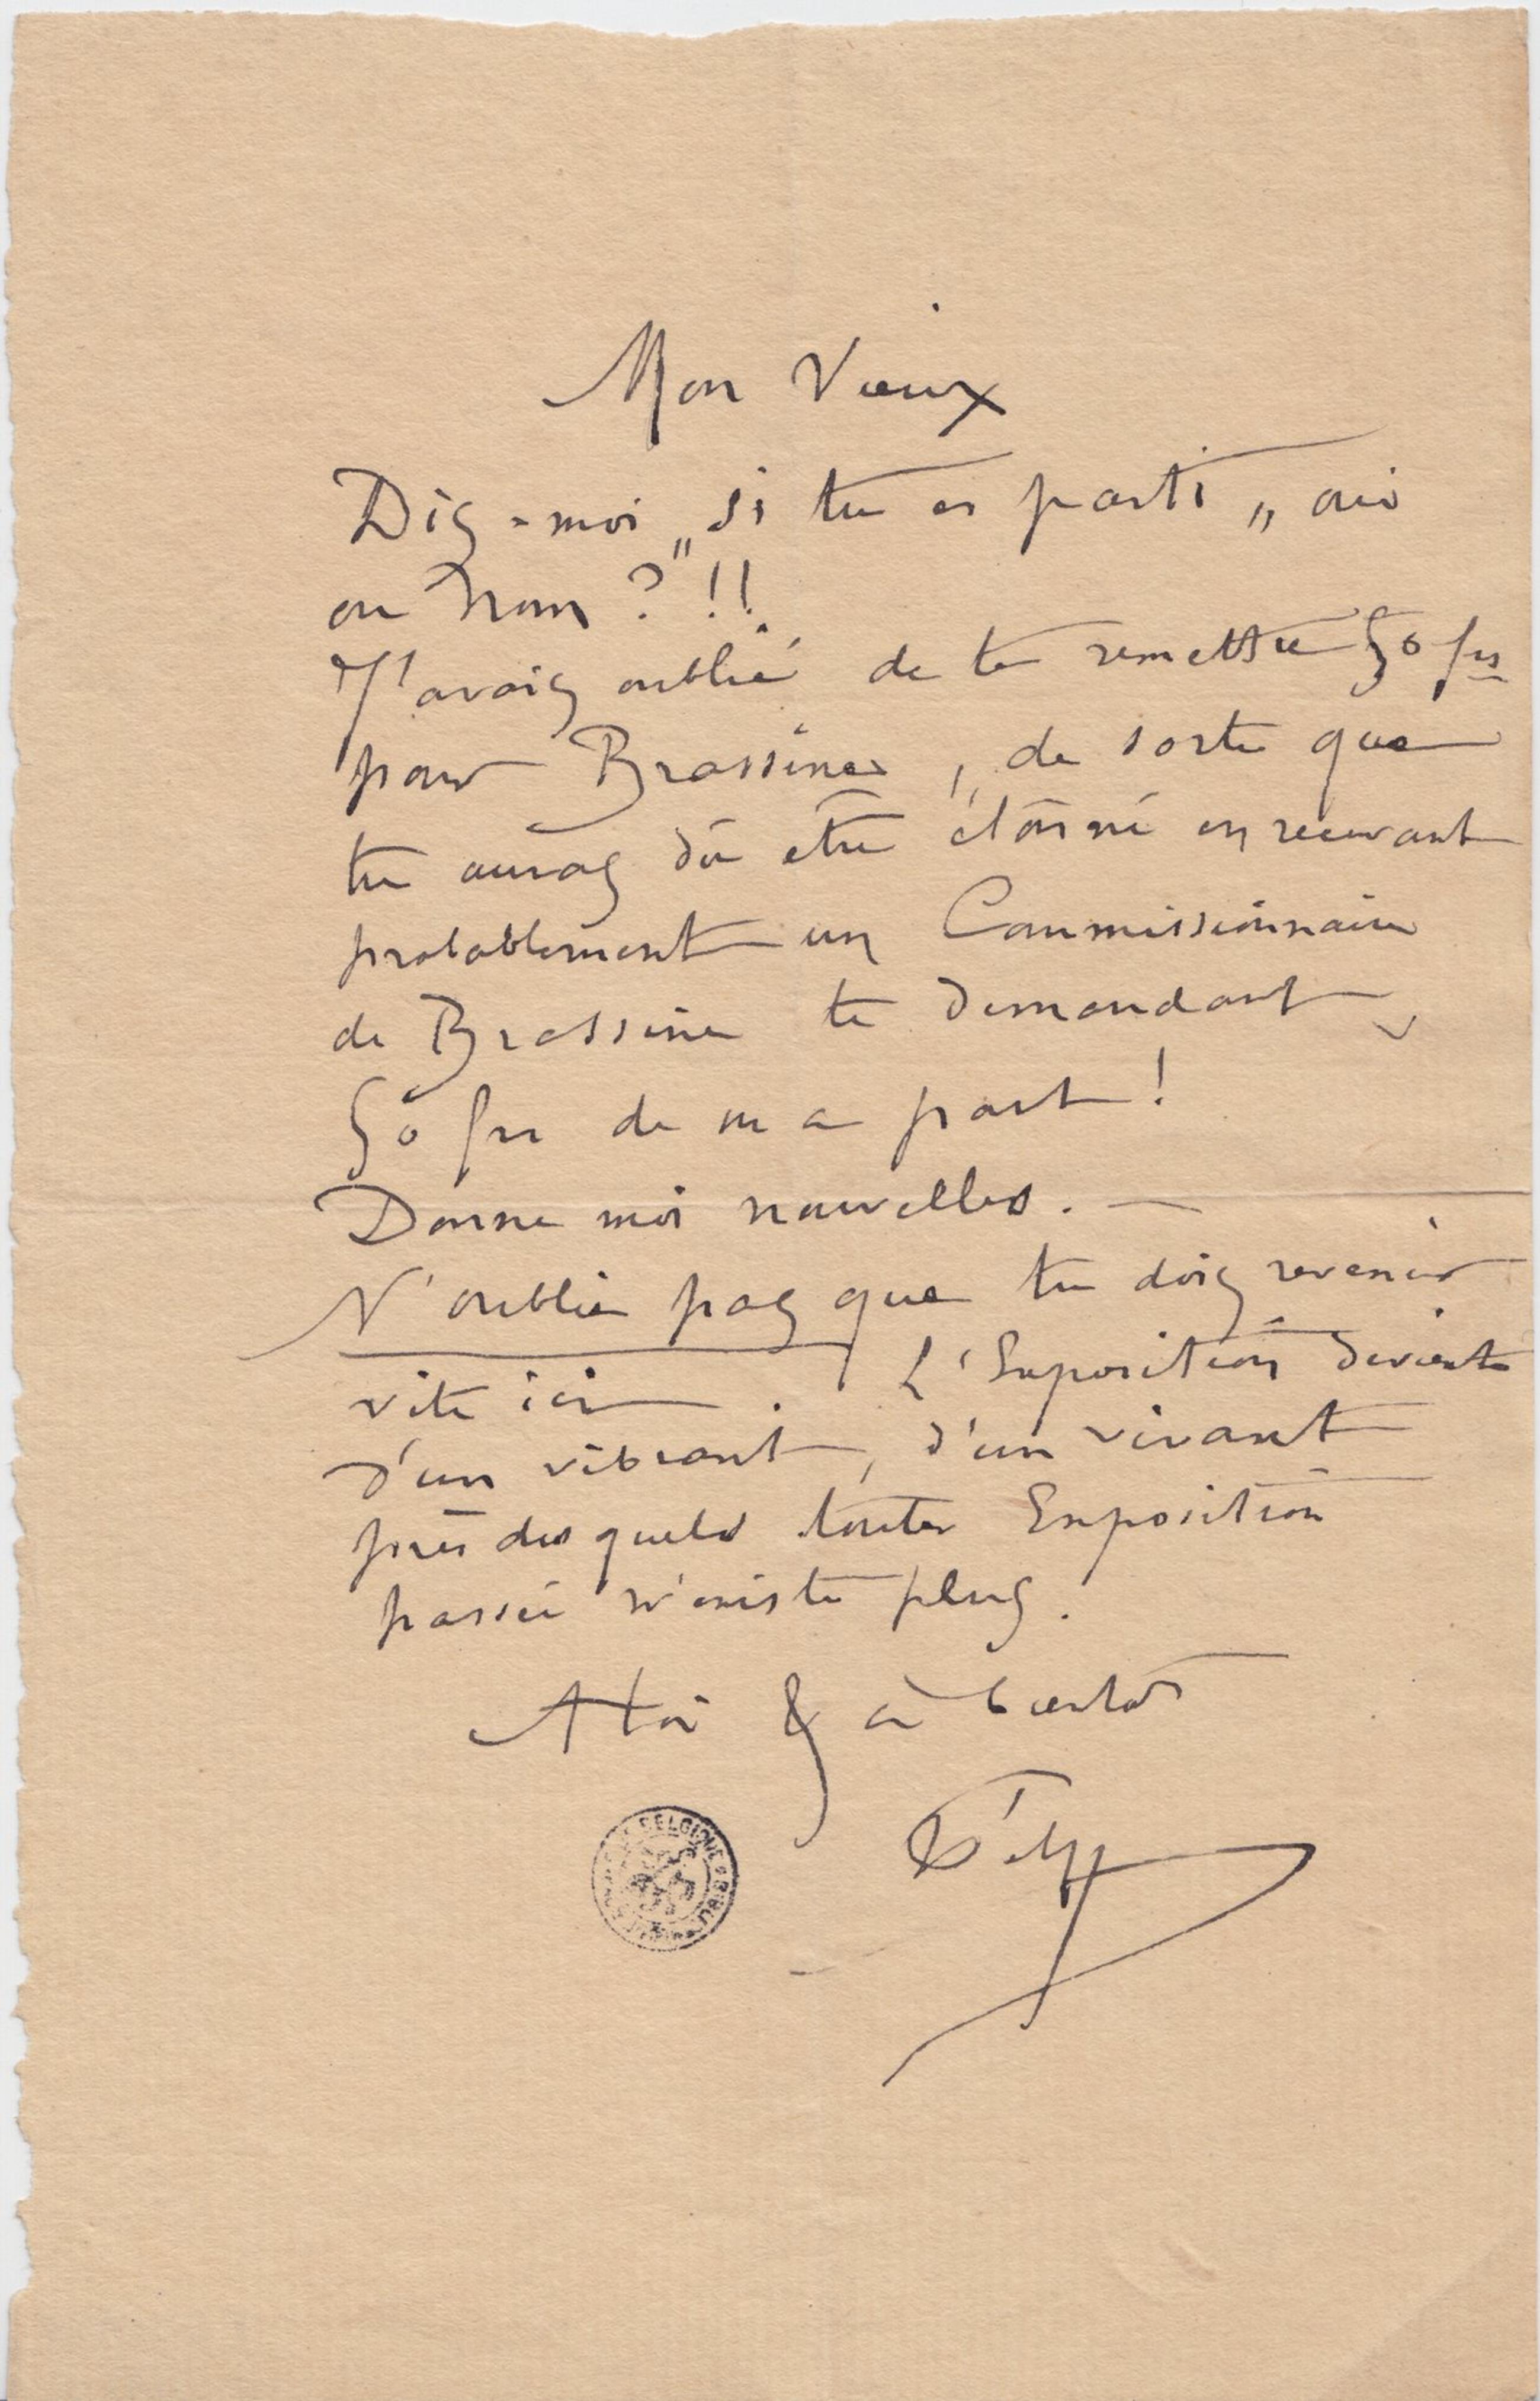 Mon Vieux
Dis-moi „ si tu es parti „ oui
ou nom ?" !!
J'avais oublié de te remettre 50 frs
pour Brassine , de sorte que
tu auras dû être étonné en recevant
probablement un Commissionnaire
de Brassine te demandant
50 frs de ma part !
Donne moi nouvelles . —
N'oublie pas que tu dois revenir
vite ici . L'Exposition devient
d'un vibrant , d'un vivant
près desquels toutes Exposition
passée n'existe plus .
A toi & à bientôt
BELGIQUE